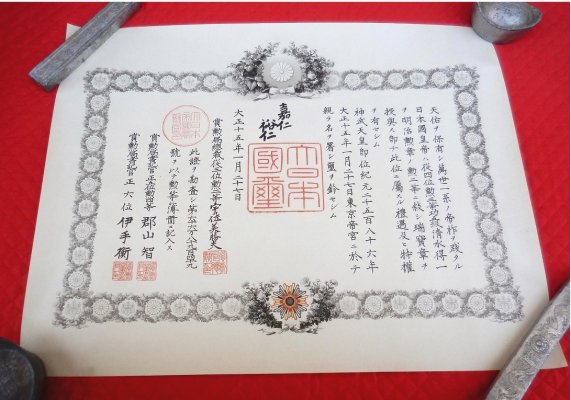 天佑ヲ保有シ萬世一系ノ帝祚ヲ踐タル
日本國皇帝ハ從四位勳三等功 級清水得一
ヲ明治勳章ノ勳二等ニ敍シ瑞寶章ヲ
授與ス即チ此位ニ屬スル禮遇及ヒ特權
ヲ有セシム
神武天皇即位紀元二千五百八十六年
大正十五年一月二十七日東京帝宮ニ於テ
親ラ名ヲ署シ璽ヲ鈐セシム
嘉仁
裕仁
大日本國璽
大正十五年一月二十七日
賞勳局總裁從二位勳一等
此證ヲ勘査シ第 號ヲ以テ勳等簿册ニ記入ス
賞勳局書記官正五位勳四等 郡山 智
賞勳局書記官正六位 伊手 衡